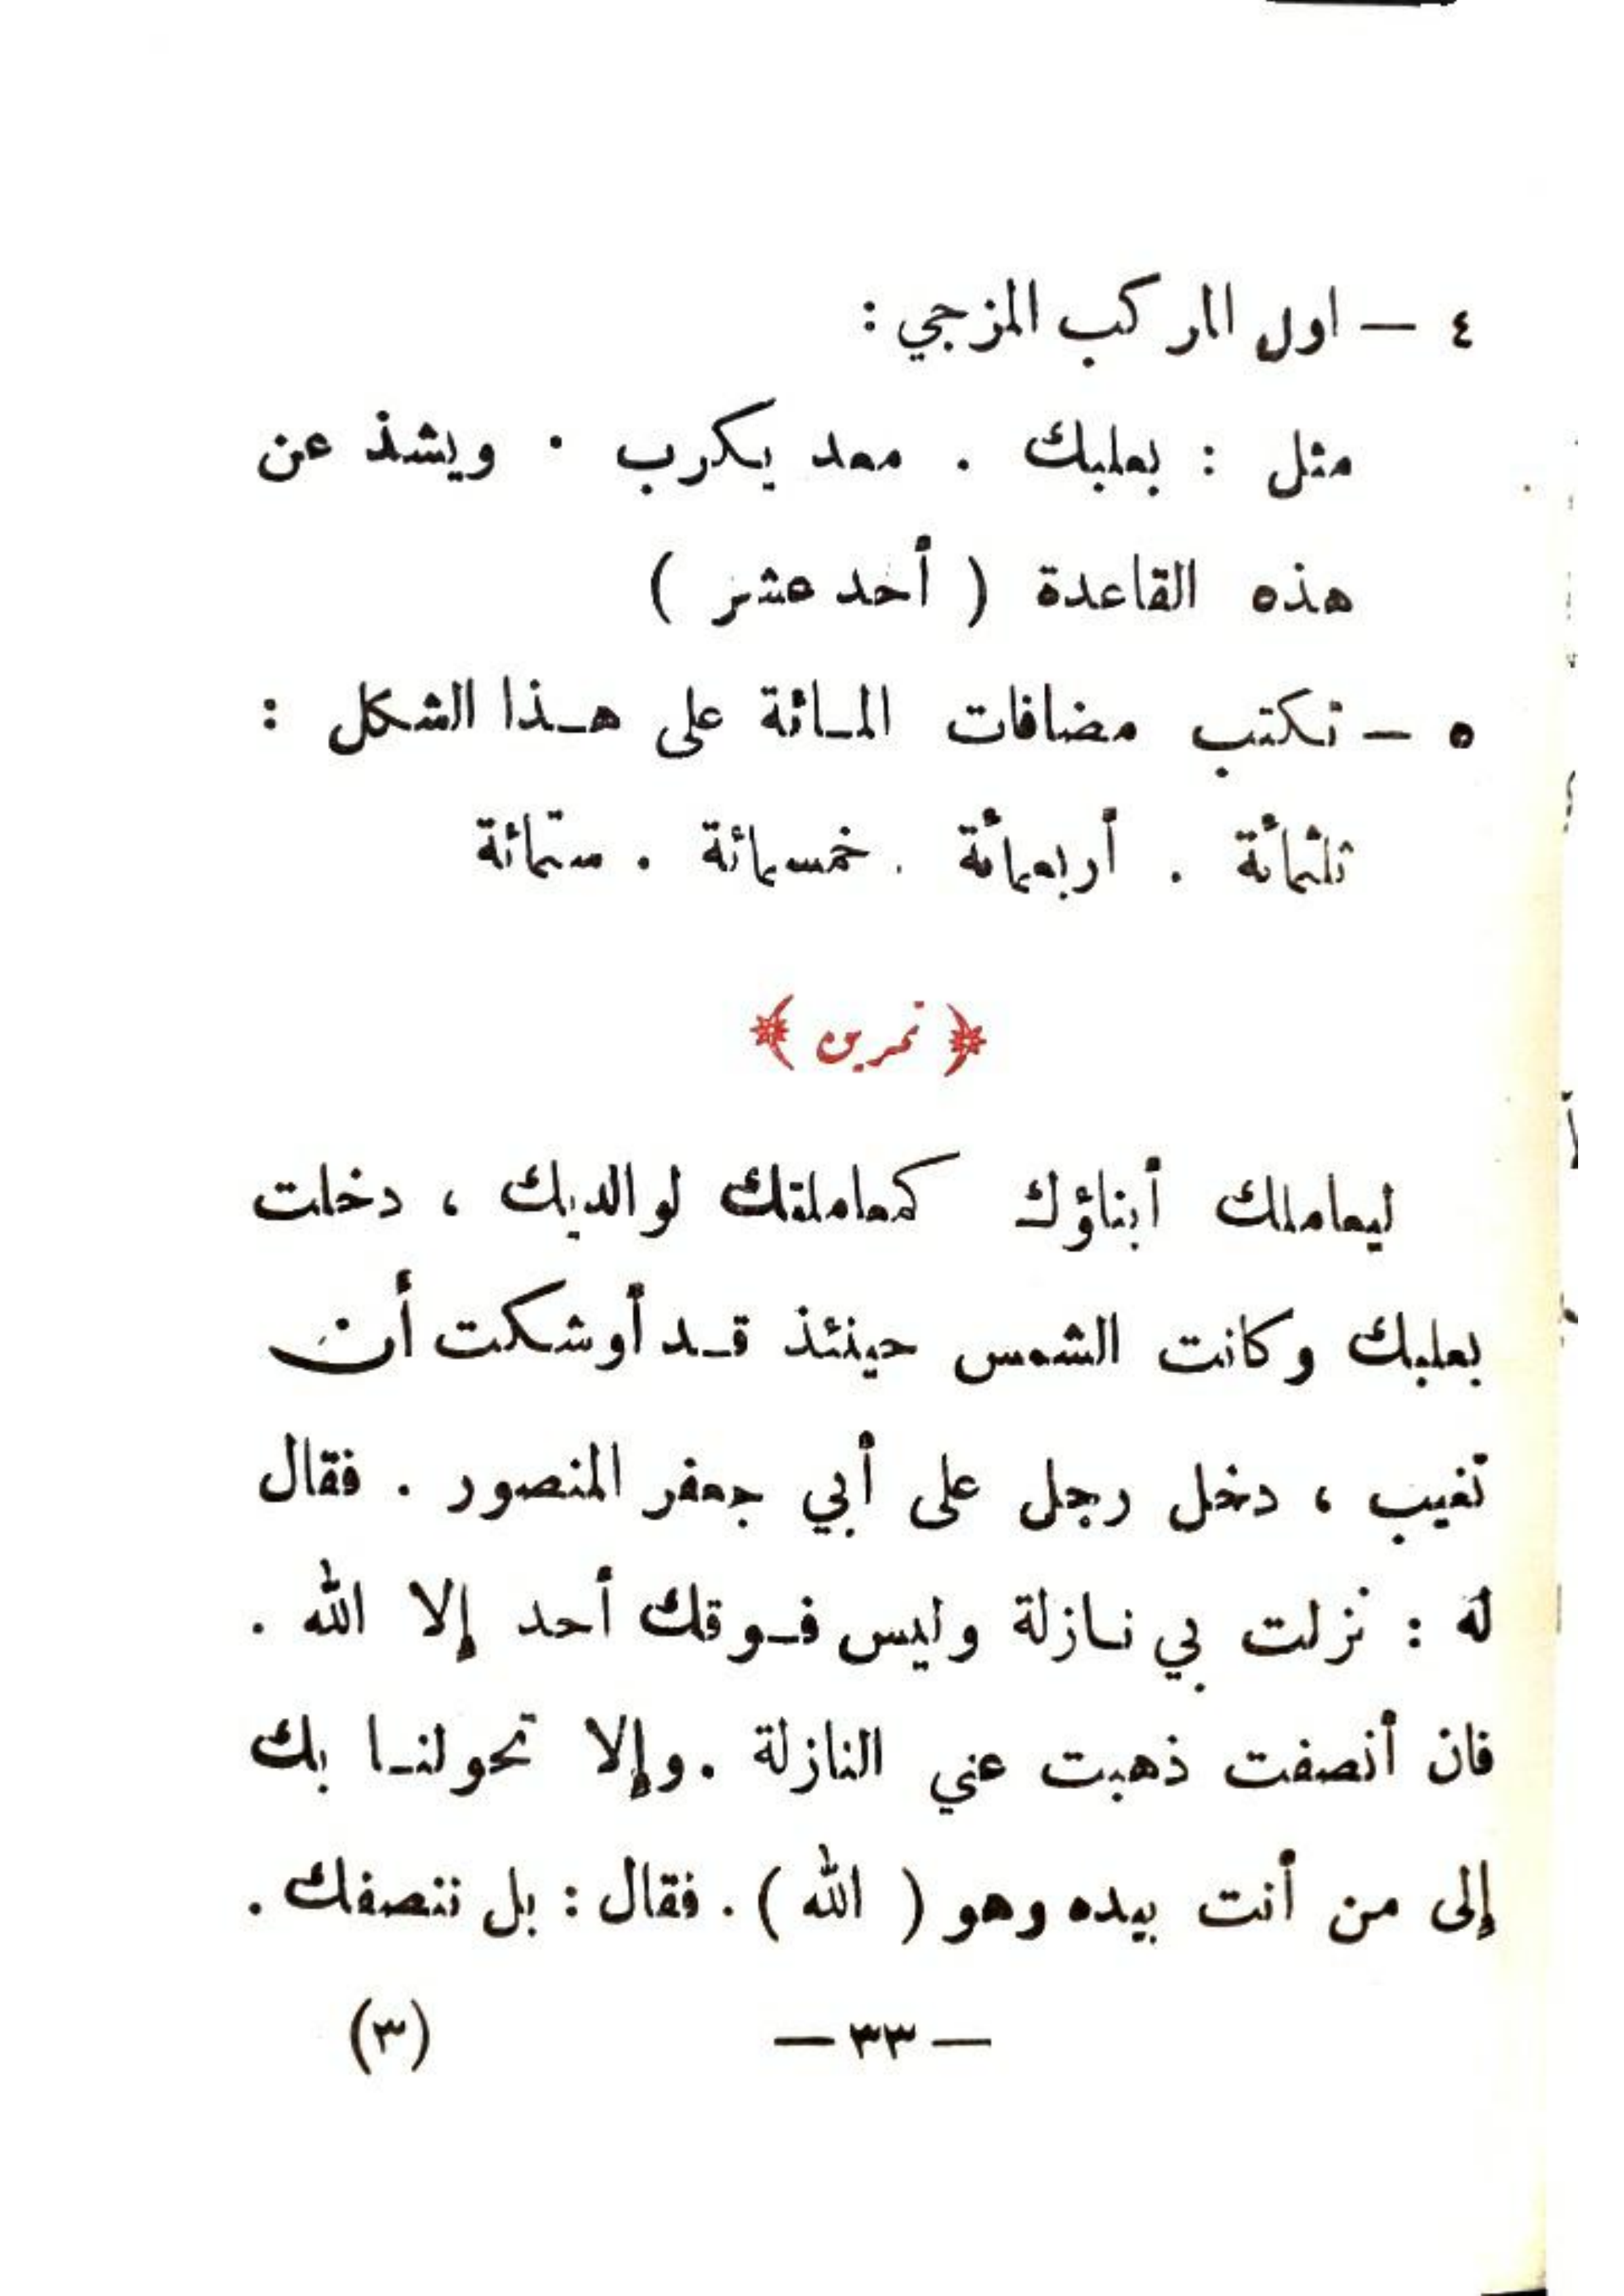 ٤ — اول المركب المزجي :
مثل : بعلبك . معد يكرب . ويشذ عن
هذه القاعدة ( أحد عشر )
٥ — تكتب مضافات المـائة على هـذا الشكل :
ثلثمأئة . أربعمأئة . خمسمائة . ستمائة
﴿ تمرين ﴾
ليعاملك أبناؤك كمعاملتك لوالديك ، دخلت
بعلبك وكانت الشمس حينئذ قـد أوشكت أن
تغيب ، دخل رجل على أبي جعفر المنصور . فقال
له : نزلت بي نـازلة وليس فـوقك أحد إلا الله .
فان أنصفت ذهبت عني النازلة . وإلا تحولنـا بك
إلى من أنت بيده وهو ( الله ) . فقال : بل ننصفك .
— ٣٣ — (٣)